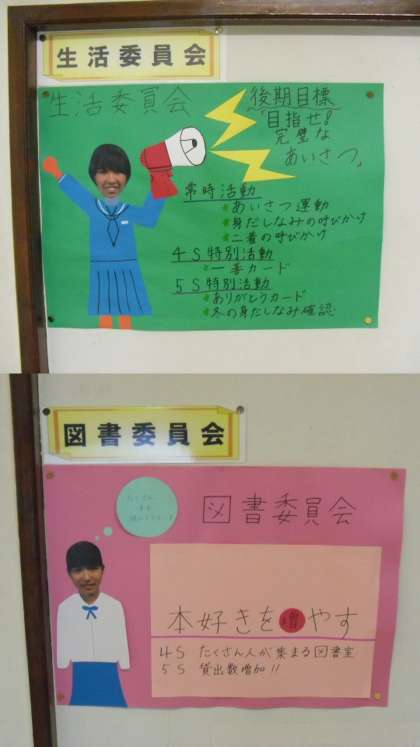 生活委員会
生活委員会
後期目標
目指せ！
完璧な
あいさつ。
常時活動
★あいさつ運動
★身だしなみの呼びかけ
★二着の呼びかけ
4S特別活動
★一善カード
5S特別活動
★ありがとうカード
★冬の身だしなみ確認
図書委員会
たくさん
本を
図書委員会
本好きを増やす
4S たくさん人が集まる図書室
5S 貸出数増加!!